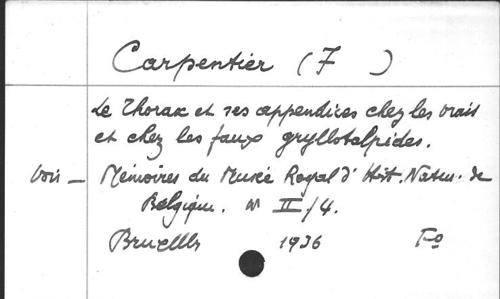 Carpentier (F )
Le Thorax et ses appendices chez les vrais
et chez les faux gryllotalpides.
Voir — Mémoires du Musée Royal d'Hist. Natur. de
Belgique. n° II/4.
Bruxelles 1936 Fo